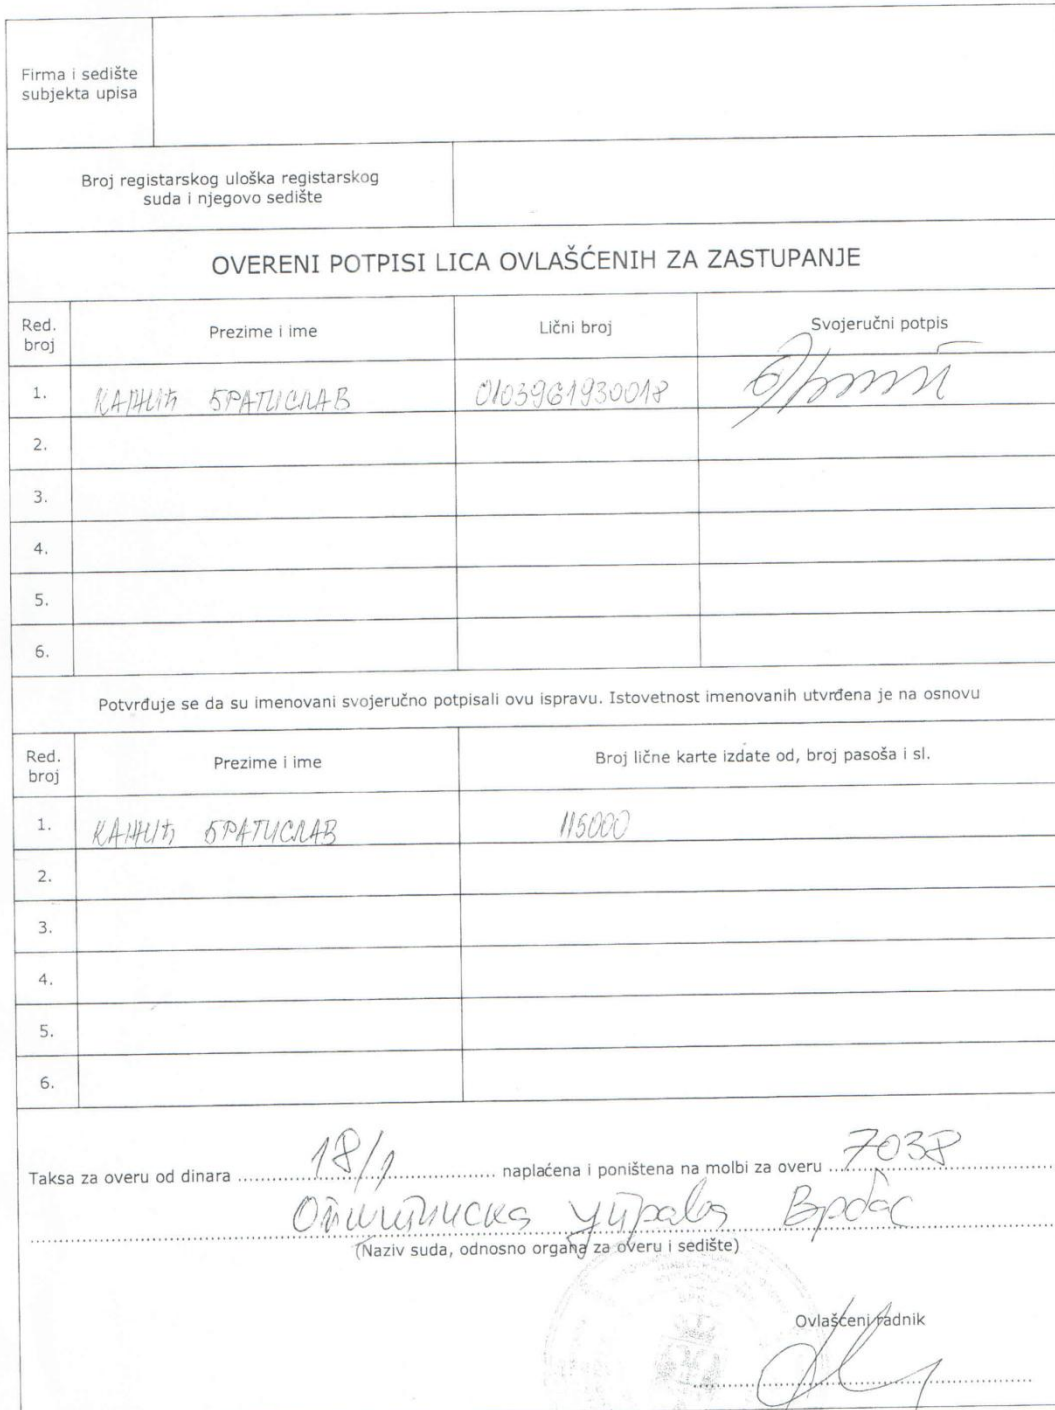 Firma i sedište
subjekta upisa
Broj registarskog uloška registarskog
suda i njegovo sedište
OVERENI POTPISI LICA OVLAŠĆENIH ZA ZASTUPANJE
Red. broj Prezime i ime Lični broj Svojeručni potpis
1. КАНЖИЋ БРАТИСЛАВ 0103961930018
2.
3.
4.
5.
6.
Potvrđuje se da su imenovani svojeručno potpisali ovu ispravu. Istovetnost imenovanih utvrđena je na osnovu
Red. broj Prezime i ime Broj lične karte izdate od, broj pasoša i sl.
1. КАНЖИЋ БРАТИСЛАВ 115000
2.
3.
4.
5.
6.
Taksa za overu od dinara 18/1 naplaćena i poništena na molbi za overu 7038
Општинска управа Врбас
(Naziv suda, odnosno organa za overu i sedište)
Ovlašćeni radnik